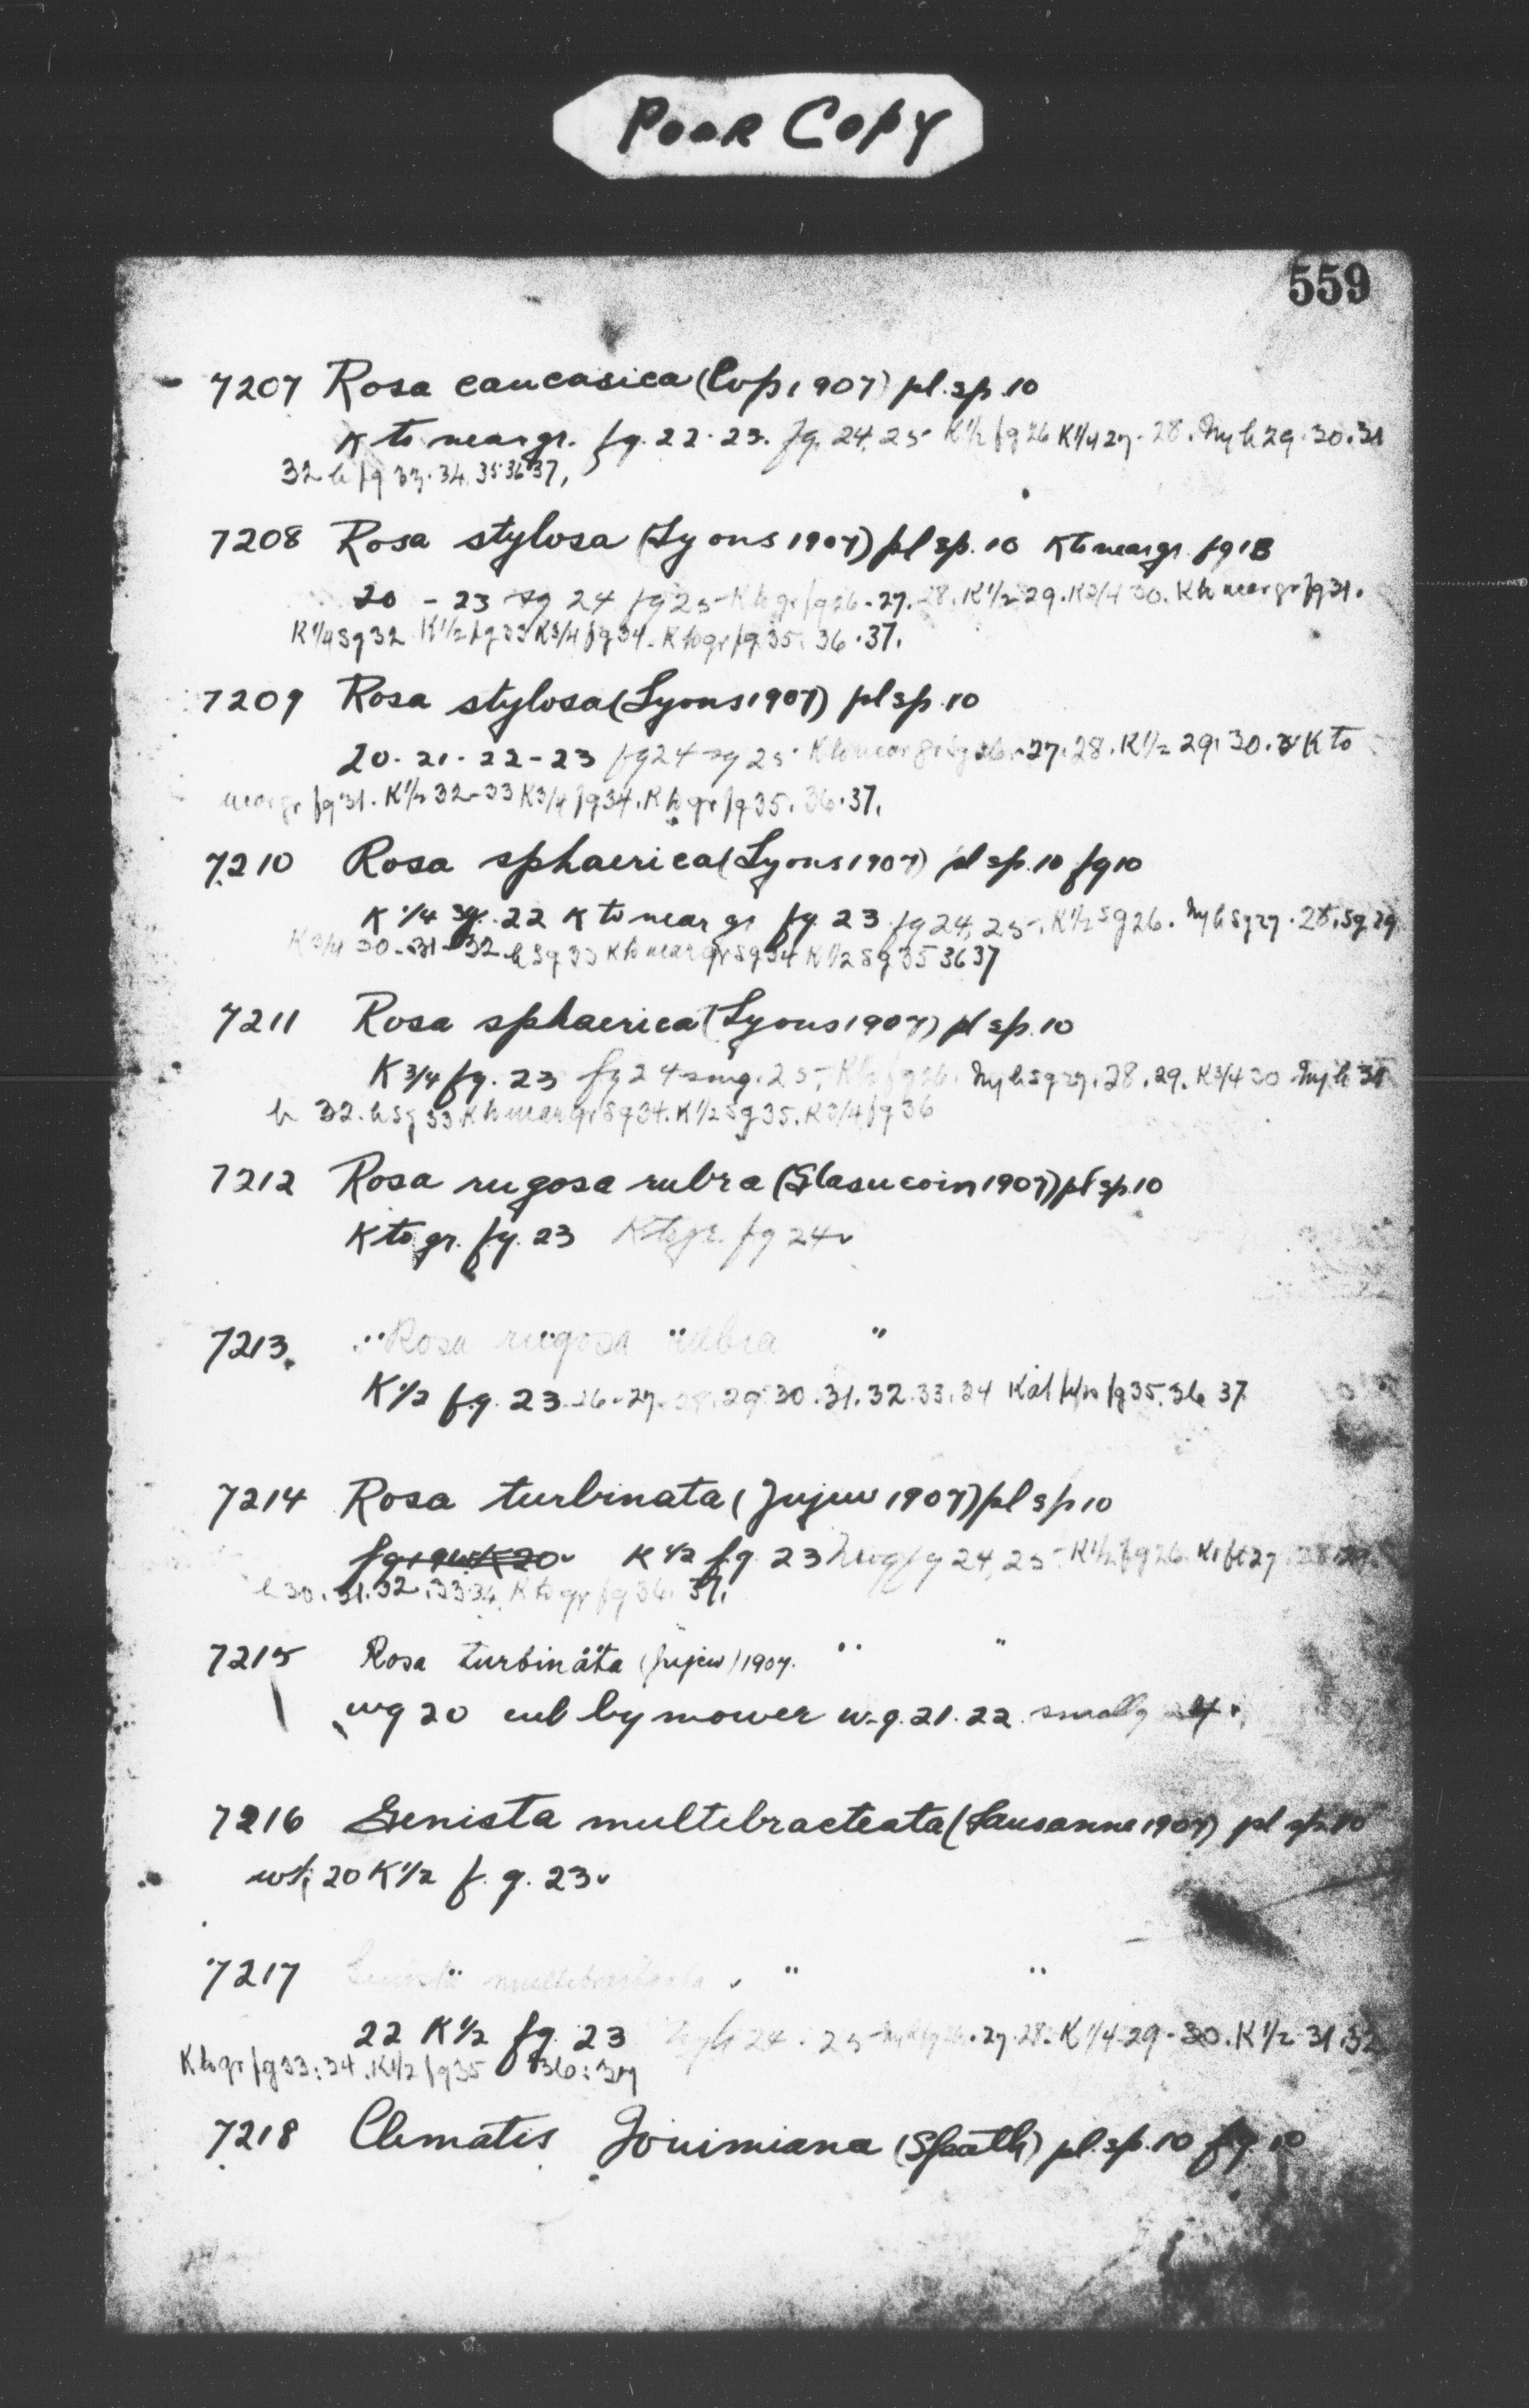 POOR COPY
559
7207 Rosa caucasica (Cop 1907) pl. sp. 10
K to near gr. fg. 22. 23. fg. 24, 25 K 1/2 fg 26 K 1/4 27. 28. h 29. 30. 31
32 h fg 33. 34. 35 36 37,
7208 Rosa stylosa (Lyons 1907) pl sp. 10 K to near gr. fg 18
20 - 23 sg 24 fg 25 K to gr fg 26. 27. 28. K 1/2 29. K 3/4 30. K to near gr fg 31.
K 1/4 sg 32 K 1/2 fg 33 K 3/4 fg 34. K to gr fg 35. 36. 37.
7209 Rosa stylosa (Lyons 1907) pl sp. 10
20. 21. 22 - 23 fg 24 sg 25 K to near gr sg 26. 27. 28. K 1/2 29. 30. K to
near gr fg 31. K 1/2 32-33 K 3/4 fg 34. K to gr fg 35. 36. 37.
7210 Rosa sphaerica (Lyons 1907) pl sp. 10 fg 10
K 1/4 sg. 22 K to near gr fg. 23 fg 24, 25. K 1/2 sg 26. h sg 27. 28. sg 29
K 3/4 30-31-32 h sg 33 K to near gr sg 34 K 1/2 sg 35 36 37
7211 Rosa sphaerica (Lyons 1907) pl sp. 10
K 3/4 fg. 23 fg 24 smg. 25, K 1/2 fg 26. h sg 27. 28. 29. K 3/4 30 h 31
h 32. h sg 33 K to near gr sg 34. K 1/2 sg 35. K 3/4 fg 36
7212 Rosa rugosa rubra (Glasucoin 1907) pl sp. 10
K to gr. fg. 23 K to gr. fg 24
7213. " Rosa rugosa " rubra "
K 1/2 f.g. 23 26. 27. 28. 29. 30. 31. 32. 33. 34 fg 35. 36 37
7214 Rosa turbinata (Jujuw 1907) pl sp 10
K 1/2 f.g. 23 fg 24, 25 K 1/2 fg 26. K 1 ft 27 28. 29.
h 30. 31. 32. 33 34. K to gr fg 36. 37.
7215 Rosa turbinata (Jujew) 1907. " "
wg 20 cut by mower w.g. 21. 22. small g 24.
7216 Genista multebracteata (Lausanne 1907) pl sp. 10
20 K 1/2 f. g. 23
7217 Genista multebracteata " "
22 K 1/2 fg. 23 24. 25 27. 28. K 1/4 29 - 30. K 1/2 31. 32
K to gr fg 33. 34. K 1/2 fg 35 36. 37
7218 Clematis Jouimiana (Spath) pl. sp. 10 fg. 10